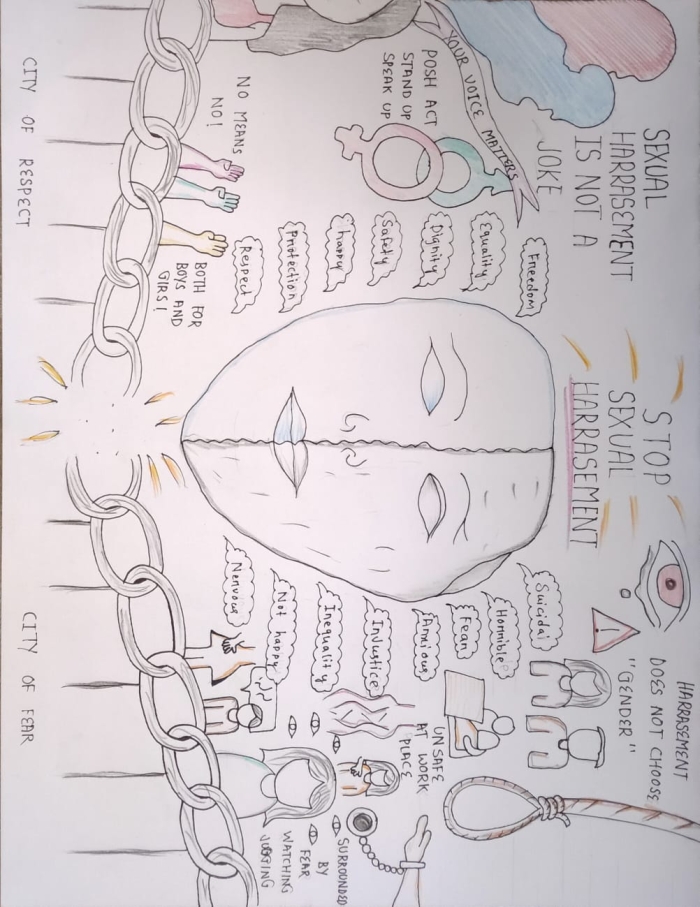 SEXUAL
HARRASEMENT
IS NOT A
JOKE
YOUR VOICE MATTERS
POSH ACT
STAND UP
SPEAK UP
NO MEANS
NO!
BOTH FOR
BOYS AND
GIRS!
Freedom
Equality
Dignity
Safety
happy
Protection
Respect
CITY OF RESPECT
STOP
SEXUAL
HARRASEMENT
HARRASEMENT
DOES NOT CHOOSE
"GENDER"
Suicidal
Horrible
Fear
Anxious
InJustice
Inequality
Not happy
Nervous
UNSAFE
AT WORK
PLACE
SURROUNDED
BY
FEAR
WATCHING
JUDGING
CITY OF FEAR